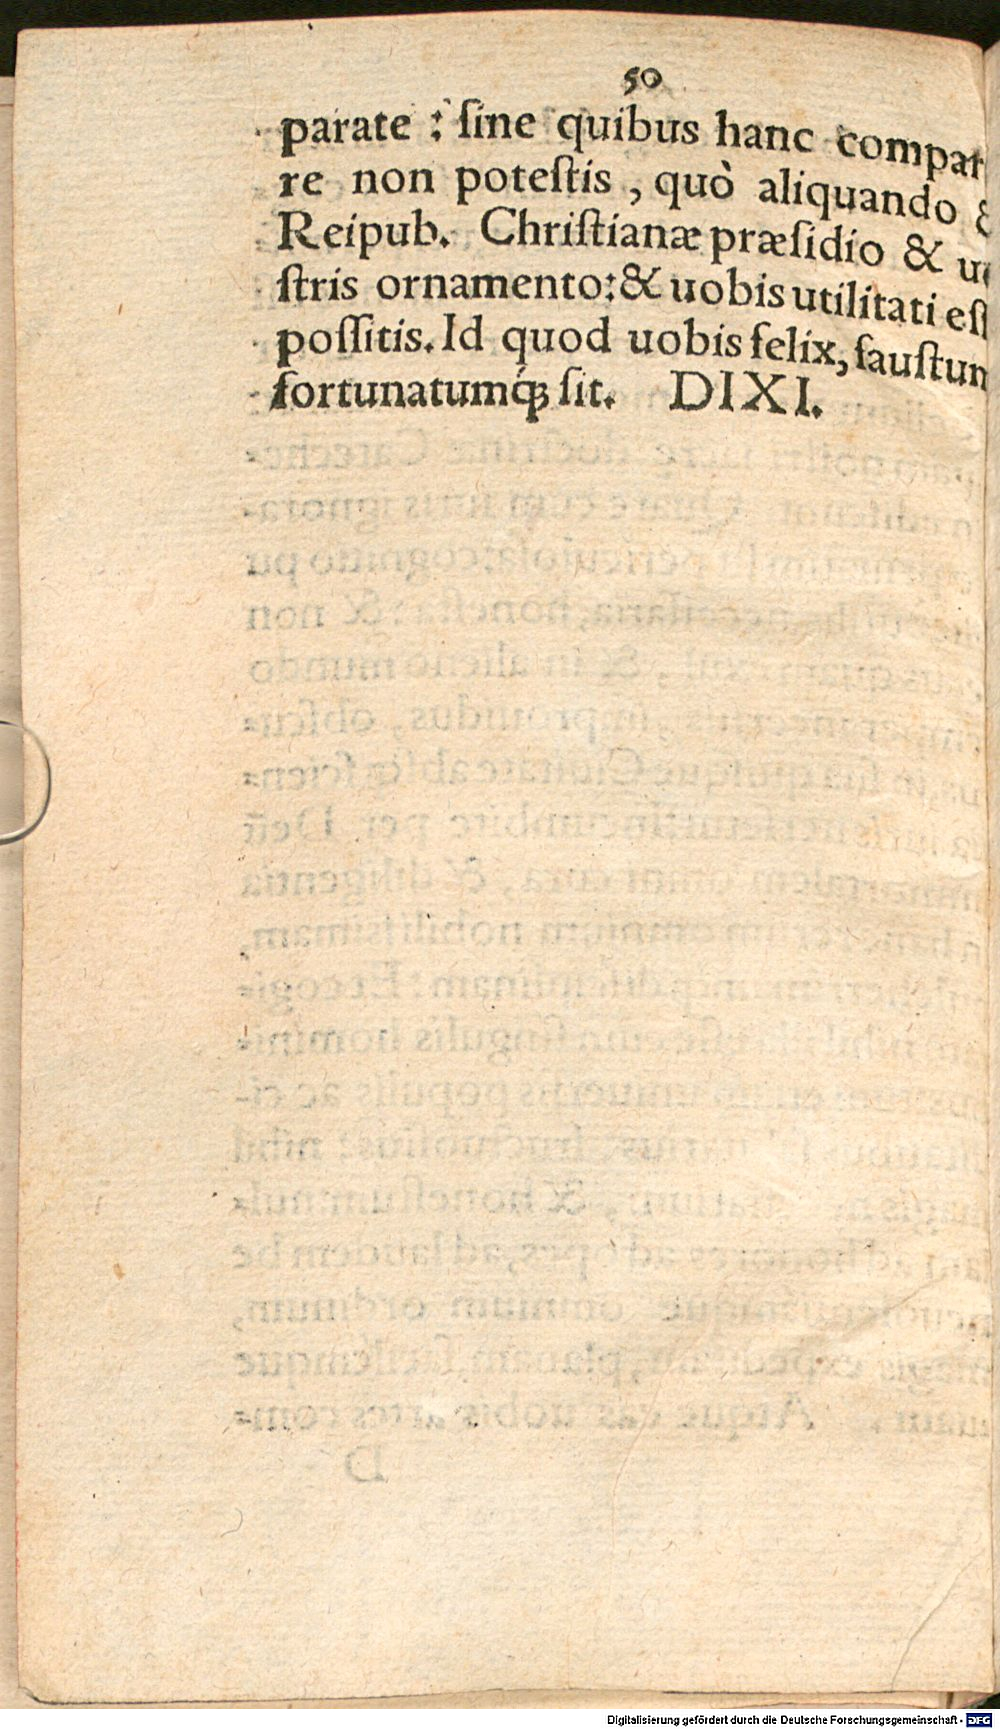 50
parate : ſine quibus hanc compar
re non poteſtis , quò aliquando &
Reipub. Chriſtianæ præſidio & ue
ſtris ornamento: & uobis utilitati eſſ
poſſitis. Id quod uobis felix, fauſtum
fortunatumq́ꝫ ſit. DIXI.
Digitalisierung gefördert durch die Deutsche Forschungsgemeinschaft - DFG